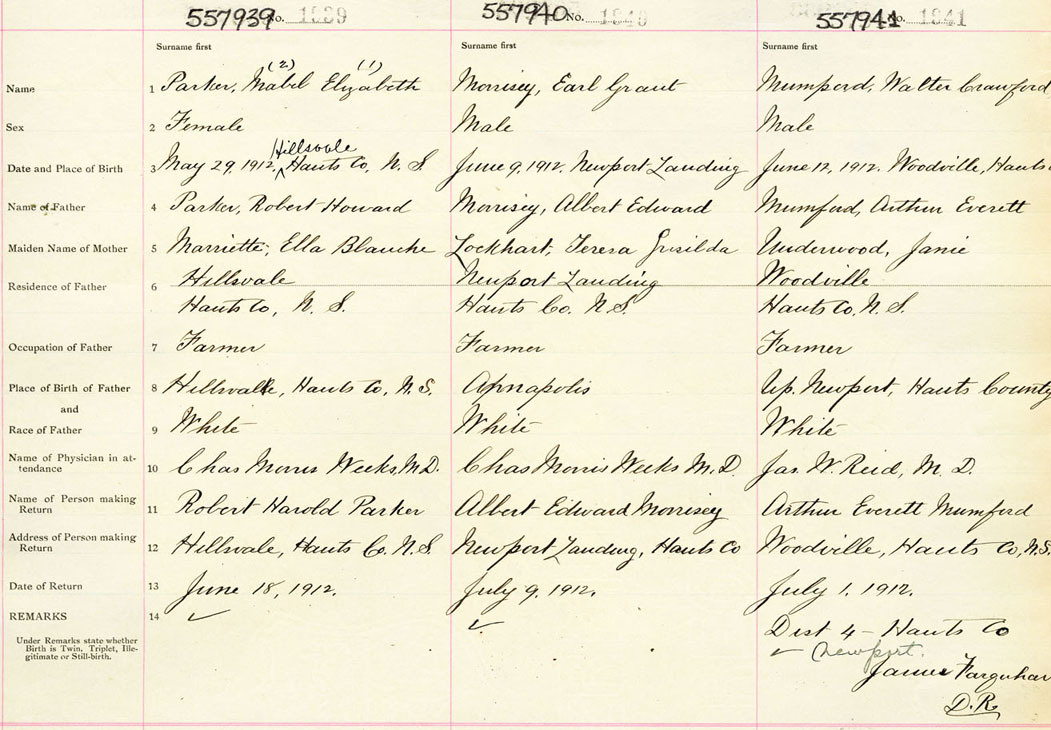 557939 No. 1839 557940 No. 1840 557941 No. 1841
Surname first Surname first Surname first
(2) (1)
Name 1 Parker, Mabel Elizabeth Morrisey, Earl Grant Mumford, Walter Crawford
Sex 2 Female Male Male
Hillsvale
Date and Place of Birth 3 May 29, 1912, Hants Co, N. S. June 9, 1912, Newport Landing June 12, 1912. Woodville, Hants
Name of Father 4 Parker, Robert Howard Morrisey, Albert Edward Mumford, Arthur Everett
Maiden Name of Mother 5 Marriette, Ella Blanche Lockhart, Teresa Grisilda Underwood, Janie
Residence of Father 6 Hillsvale Newport Landing Woodville
Hants Co, N. S. Hants Co. N.S. Hants Co. N. S.
Occupation of Father 7 Farmer Farmer Farmer
Place of Birth of Father 8 Hillsvale, Hants Co, N. S. Annapolis Up. Newport, Hants County
and
Race of Father 9 White White White
Name of Physician in at-
tendance 10 Chas Morris Weeks, M.D. Chas Morris Weeks M. D. Jas. W. Reid, M. D.
Name of Person making
Return 11 Robert Harold Parker Albert Edward Morrisey Arthur Everett Mumford
Address of Person making
Return 12 Hillsvale, Hants Co. N. S. Newport Landing, Hants Co Woodville, Hants Co, N.S.
Date of Return 13 June 18, 1912. July 9, 1912. July 1, 1912.
REMARKS 14 ✓ ✓ Dist 4 - Hants Co
Under Remarks state whether
Birth is Twin, Triplet, Ille-
gitimate or Still-birth.
✓ Newport.
James Farquhar
D. R.